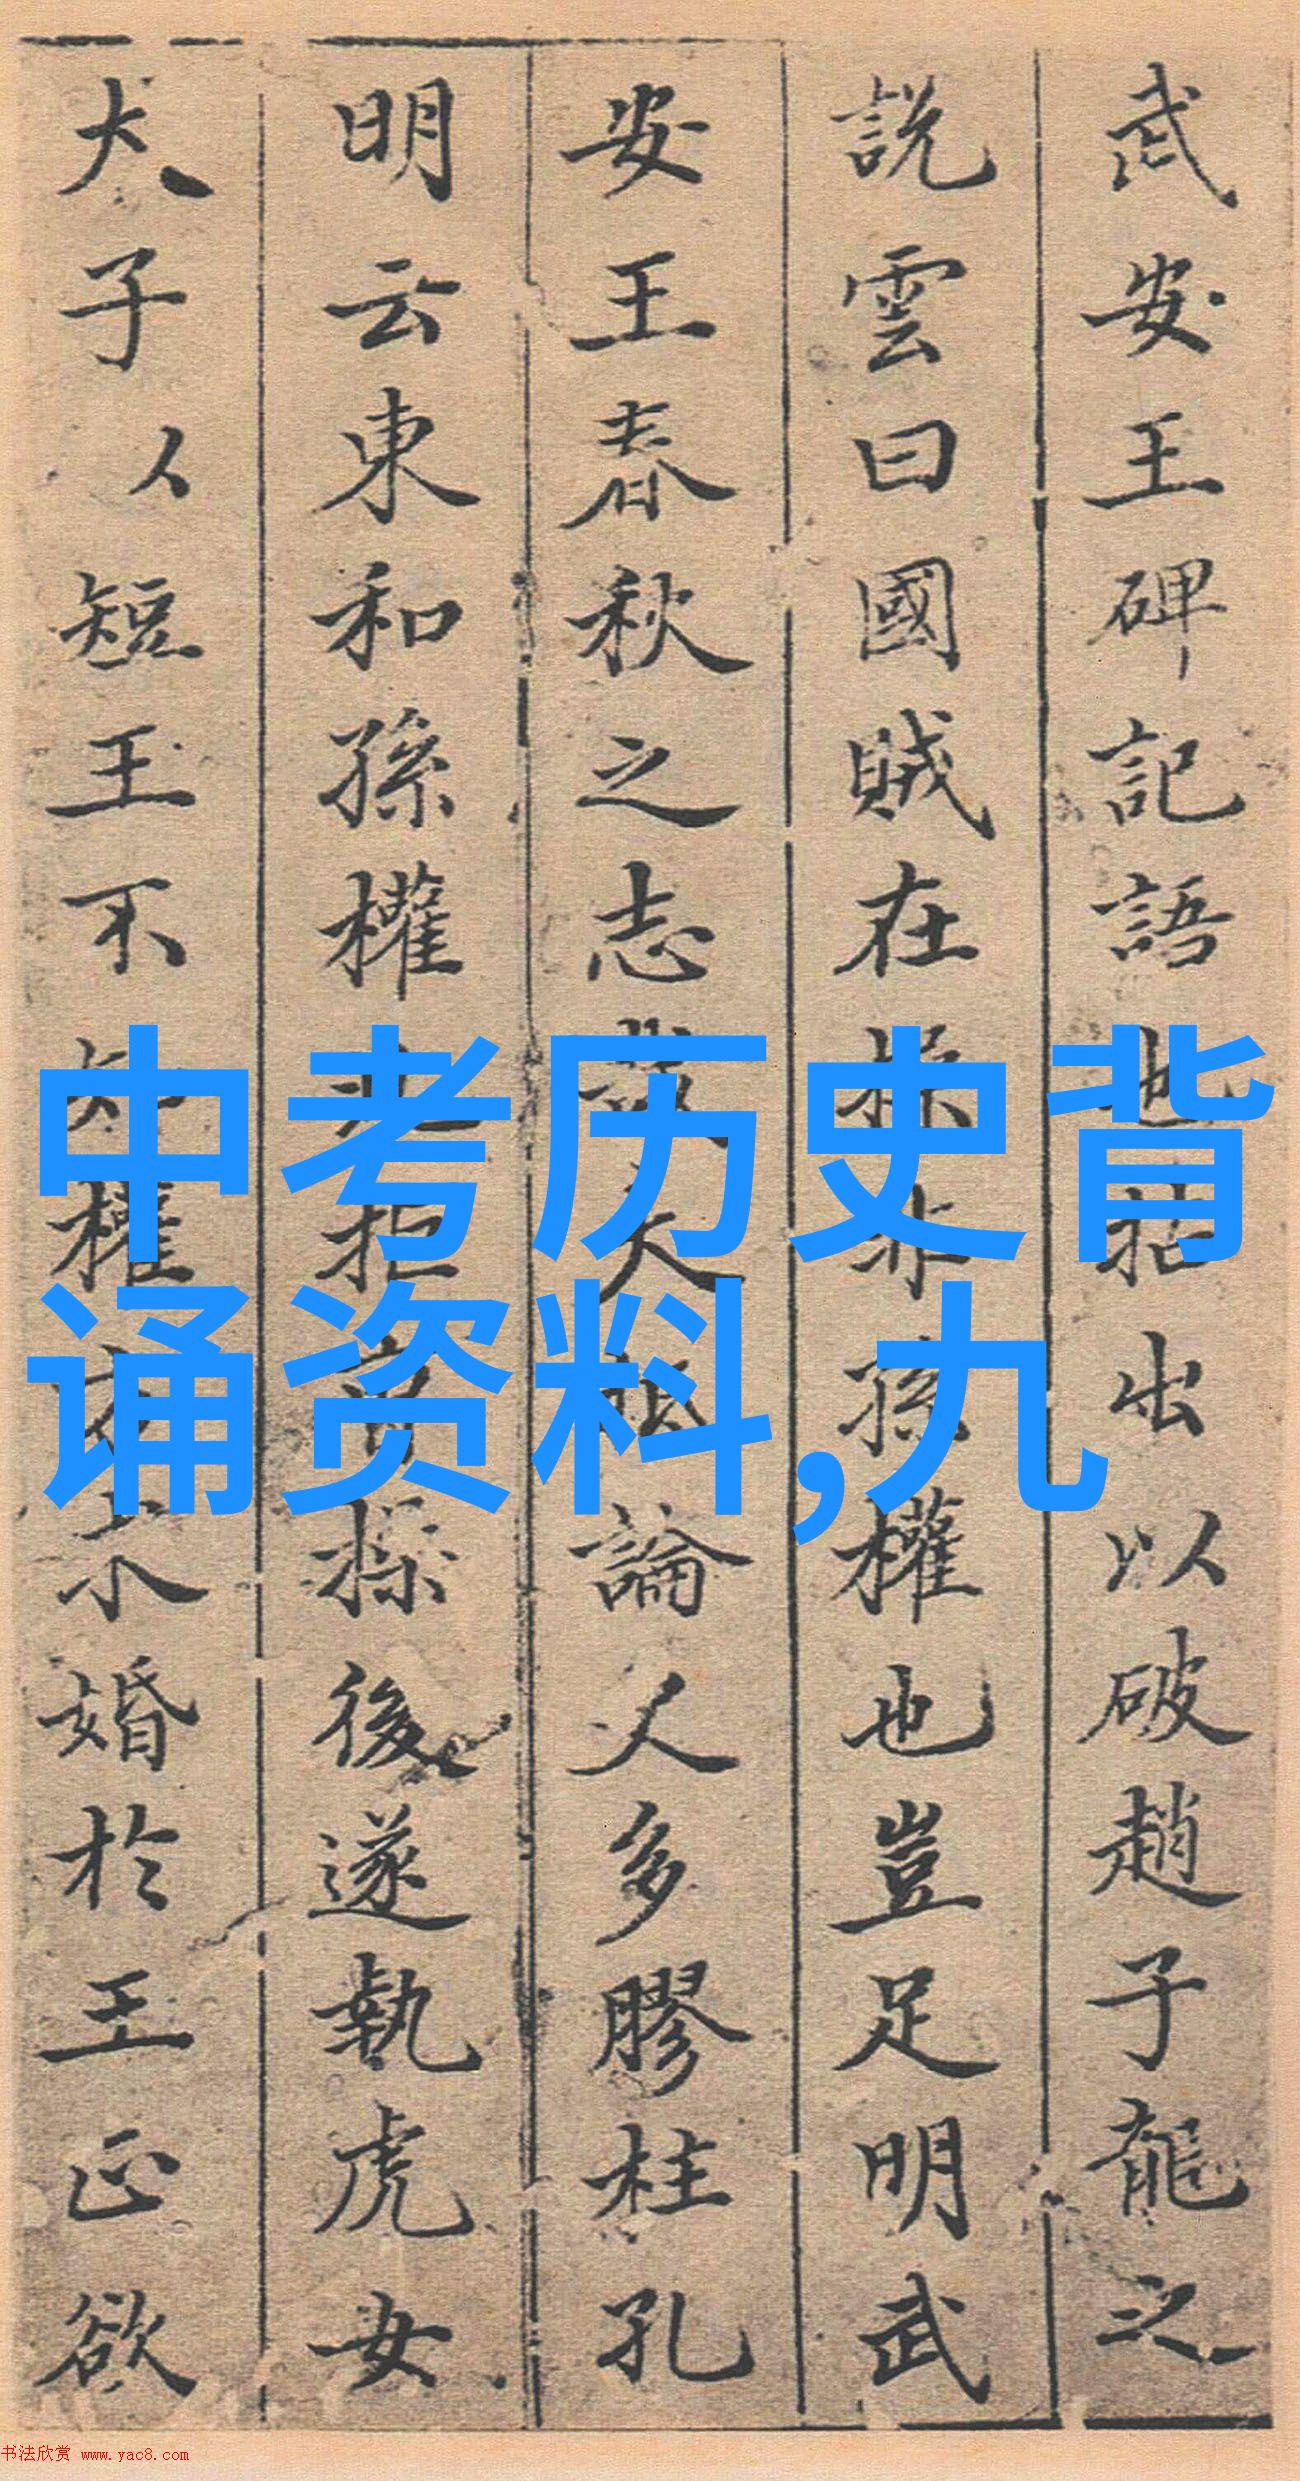 武安王碑記語也拈出以破趙子龍之
說雲曰國賊在操非孫權也豈足明武
安王春秋之志哉大抵論人多膠柱孔
明云東和孫權北拒曹操後遂執虎女
犬子以短王不知權方求婚於王正欲
中考历史背
诵资料,九
书法欣赏 www.yac8.com